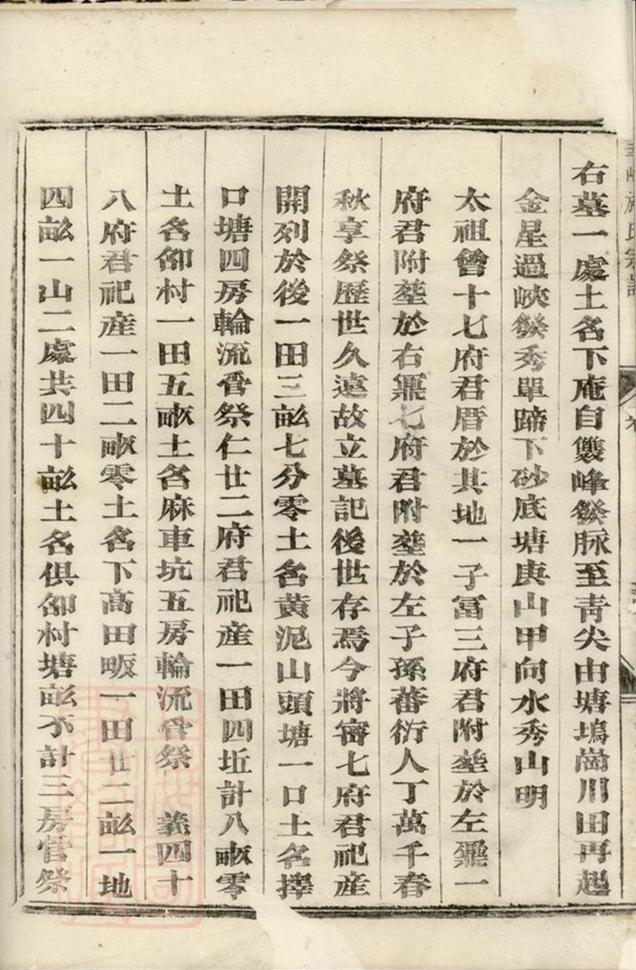 右墓一處土名下庵自雙峰發脉至青尖由塘塢崗川田再起
金星過峽發秀單蹄下砂底塘庚山甲向水秀山明
太祖曾十七府君厝於其地一子富三府君附塟於左龍一
府君附塟於右龍七府君附塟於左子孫蕃衍人丁萬千春
秋享祭歷世久遠故立墓記後世存焉今將寗七府君祀産
開列於後一田三畝七分零土名黄泥山頭塘一口土名擇
口塘四房輪流膋祭仁廿二府君祀産一田四坵計八畝零
土名邰村一田五畝土名麻車坑五房輪流膋祭 義四十
八府君祀産一田二畝零土名下髙田畈一田廿二畝一地
四畝一山二處共四十畝土名俱邰村塘畝不計三房管祭